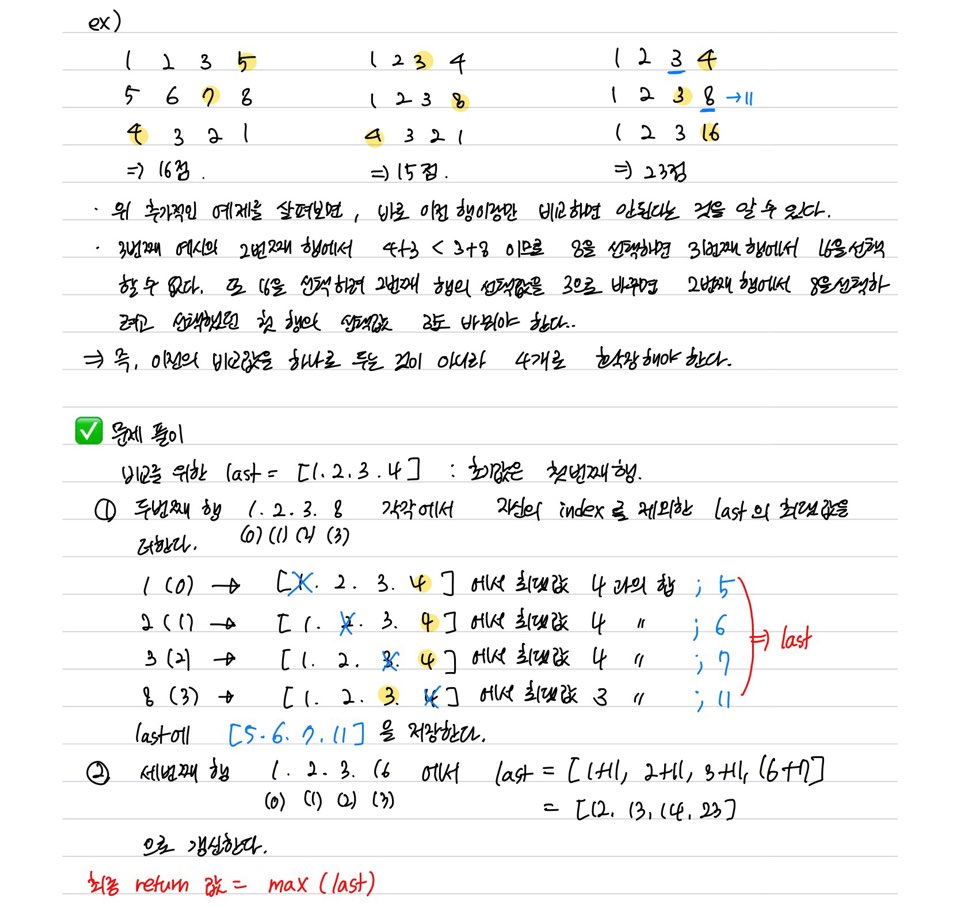 ex)
1 2 3 5 1 2 3 4 1 2 3 4
5 6 7 8 1 2 3 8 1 2 3 8 →11
4 3 2 1 4 3 2 1 1 2 3 16
=) 16점. =) 15점. =) 23점
· 위 추가적인 예제를 살펴보면, 바로 이전 행이랑만 비교하면 안된다는 것을 알 수 있다.
· 3번째 예시의 2번째 행에서 4+3 < 3+8 이므로 8을 선택하면 3번째 행에서 16을 선택
할 수 없다. 또 16을 선택하려 2번째 행의 선택값을 3으로 바꾸면 2번째 행에서 8을 선택하
려고 선택했던 첫 행의 선택값 3도 바뀌어야 한다..
⇒ 즉, 이전의 비교값을 하나로 두는 것이 아니라 4개로 확장해야 한다.
✅ 문제 풀이
비교를 위한 last = [1. 2. 3. 4] : 초기값은 첫번째 행.
① 두번째 행 1. 2. 3. 8 각각에서 자신의 index로 제외한 last의 최댓값을
더한다. (0) (1) (2) (3)
1 (0) → [1. 2. 3. 4] 에서 최댓값 4 과의 합 ; 5
2 (1) → [1. 2. 3. 4] 에서 최댓값 4 〃 ; 6
⇒ last
3 (2) → [1. 2. 3. 4] 에서 최댓값 4 〃 ; 7
8 (3) → [1. 2. 3. 4] 에서 최댓값 3 〃 ; 11
last에 [5. 6. 7. 11] 을 저장한다.
② 세번째 행 1. 2. 3. 16 에서 last = [1+11, 2+11, 3+11, 16+7]
(0) (1) (2) (3) = [12. 13, 14, 23]
으로 갱신한다.
최종 return 값 = max (last)